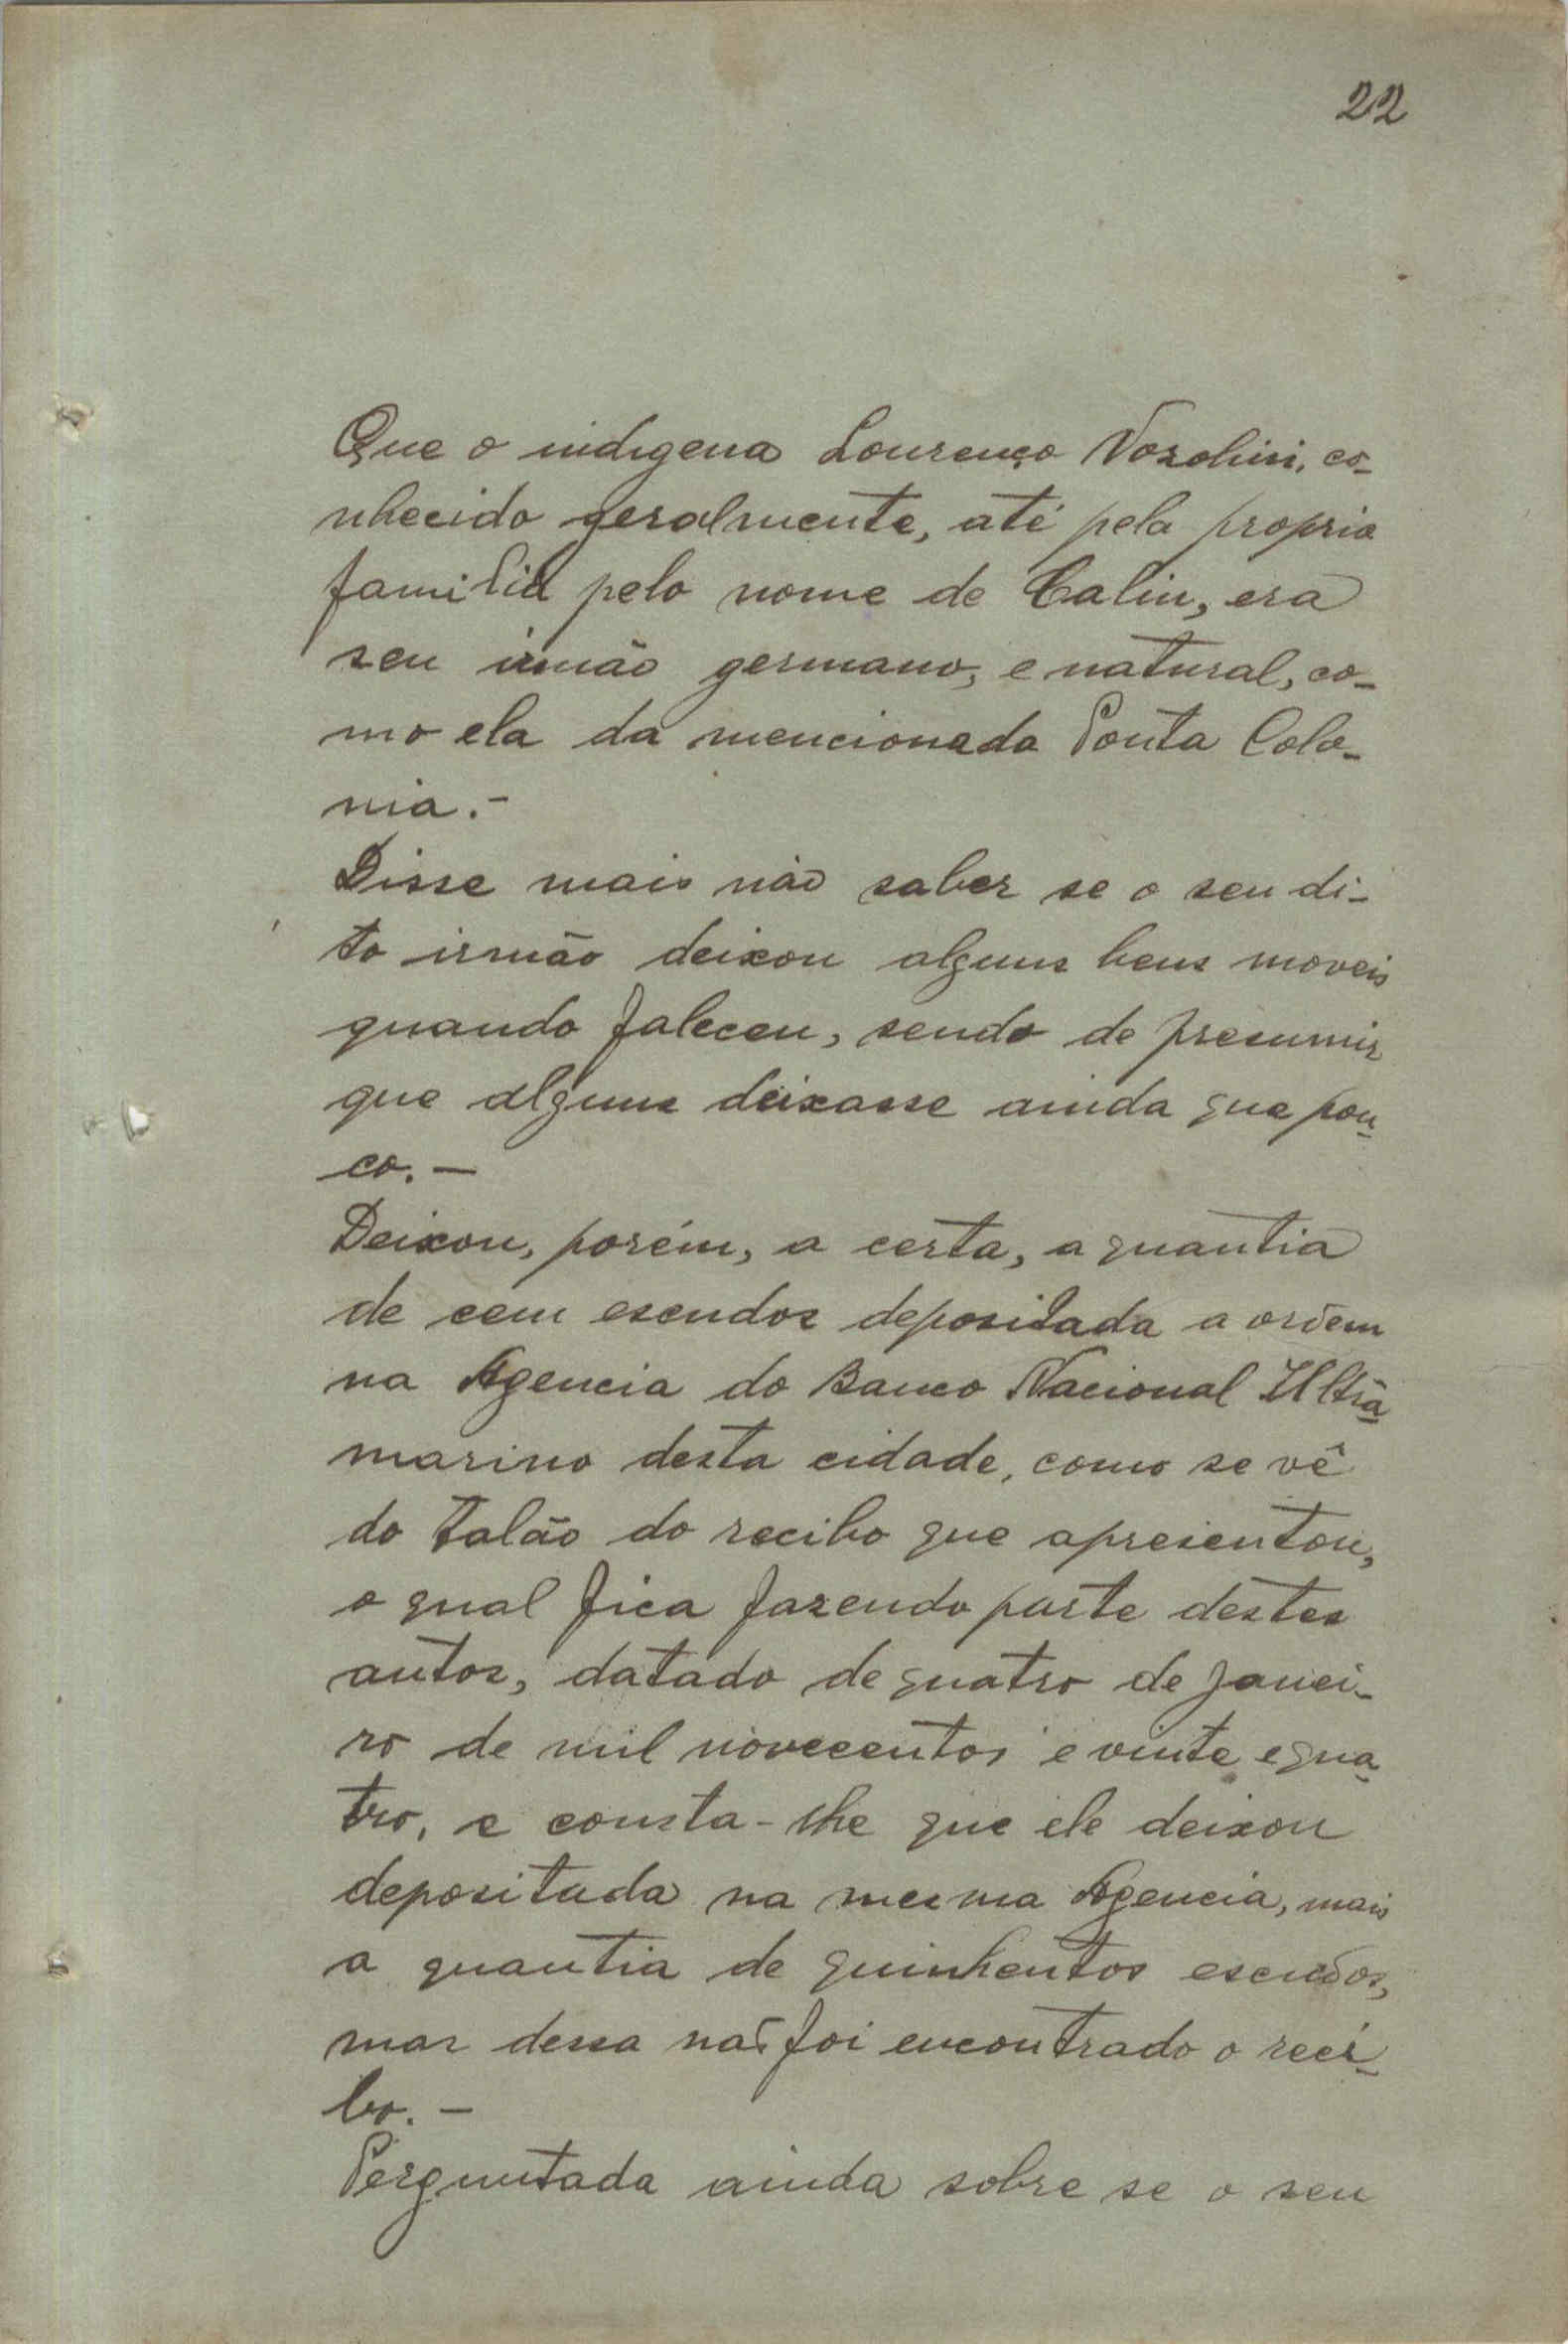 22
Que o indigena Lourenço Vozolini, co-
nhecido geralmente, até pela propria
familia pelo nome de Calin, era
seu irmão germano, e natural, co-
mo ela da mencionada Ponta Colo-
nia.-
Disse mais não saber se o seu di-
to irmão deixou alguns bens moveis
quando faleceu, sendo de presumir
que alguns deixasse ainda que pou-
co. -
Deixou, porém, a certa, a quantia
de cem escudos depositada a ordem
na Agencia do Banco Nacional Ultra-
marino desta cidade, como se vê
do talão do recibo que apresentou,
o qual fica fazendo parte destes
autos, datado de quatro de Janei-
ro de mil novecentos e vinte e qua-
tro, e consta-lhe que ele deixou
depositada na mesma Agencia, mais
a quantia de quinhentos escudos,
mas dessa não foi encontrado o reci-
bo. -
Perguntada ainda sobre se o seu